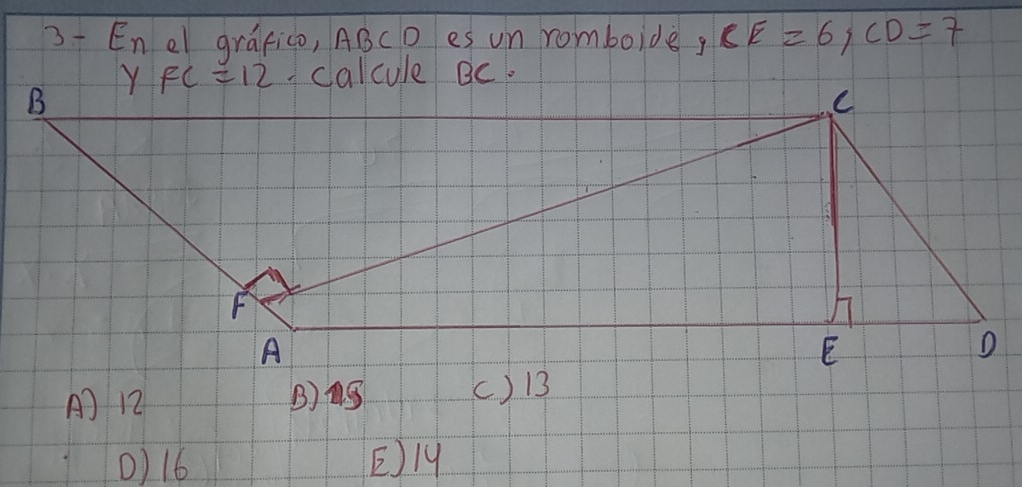 3- En el gráfico, ABCD es un romboide, CE = 6, CD = 7
Y FC = 12. Calcule BC.
B
C
F
A
E
D
A) 12
B) 15
C) 13
D) 16
E) 14